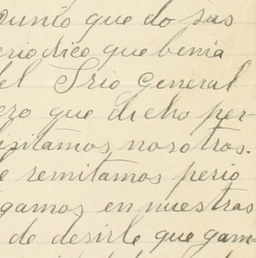 punto que do sus
eriodico que benia
del Srio General
ero que dicho per-
isitamos nosotros.
e remitamos perio
gamos en nuestras
de desirle que gam